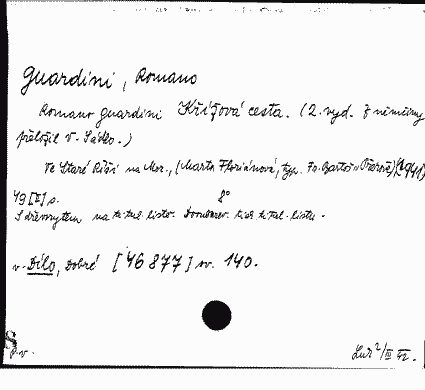 Guardini, Romano
Romano Guardini Křížová cesta. (2. vyd. Z němčiny
přeložil V. Sádlo.)
Ve Staré Říši na Mor., (Marta Floriánová, typ. Fr. Bartoš v Přerově) (1941)
49 [I] s. 8°
S dřevorytem na tit. list.
v. Dílo, Dobré [46 877] sv. 140.
p.v.
2/III 42.